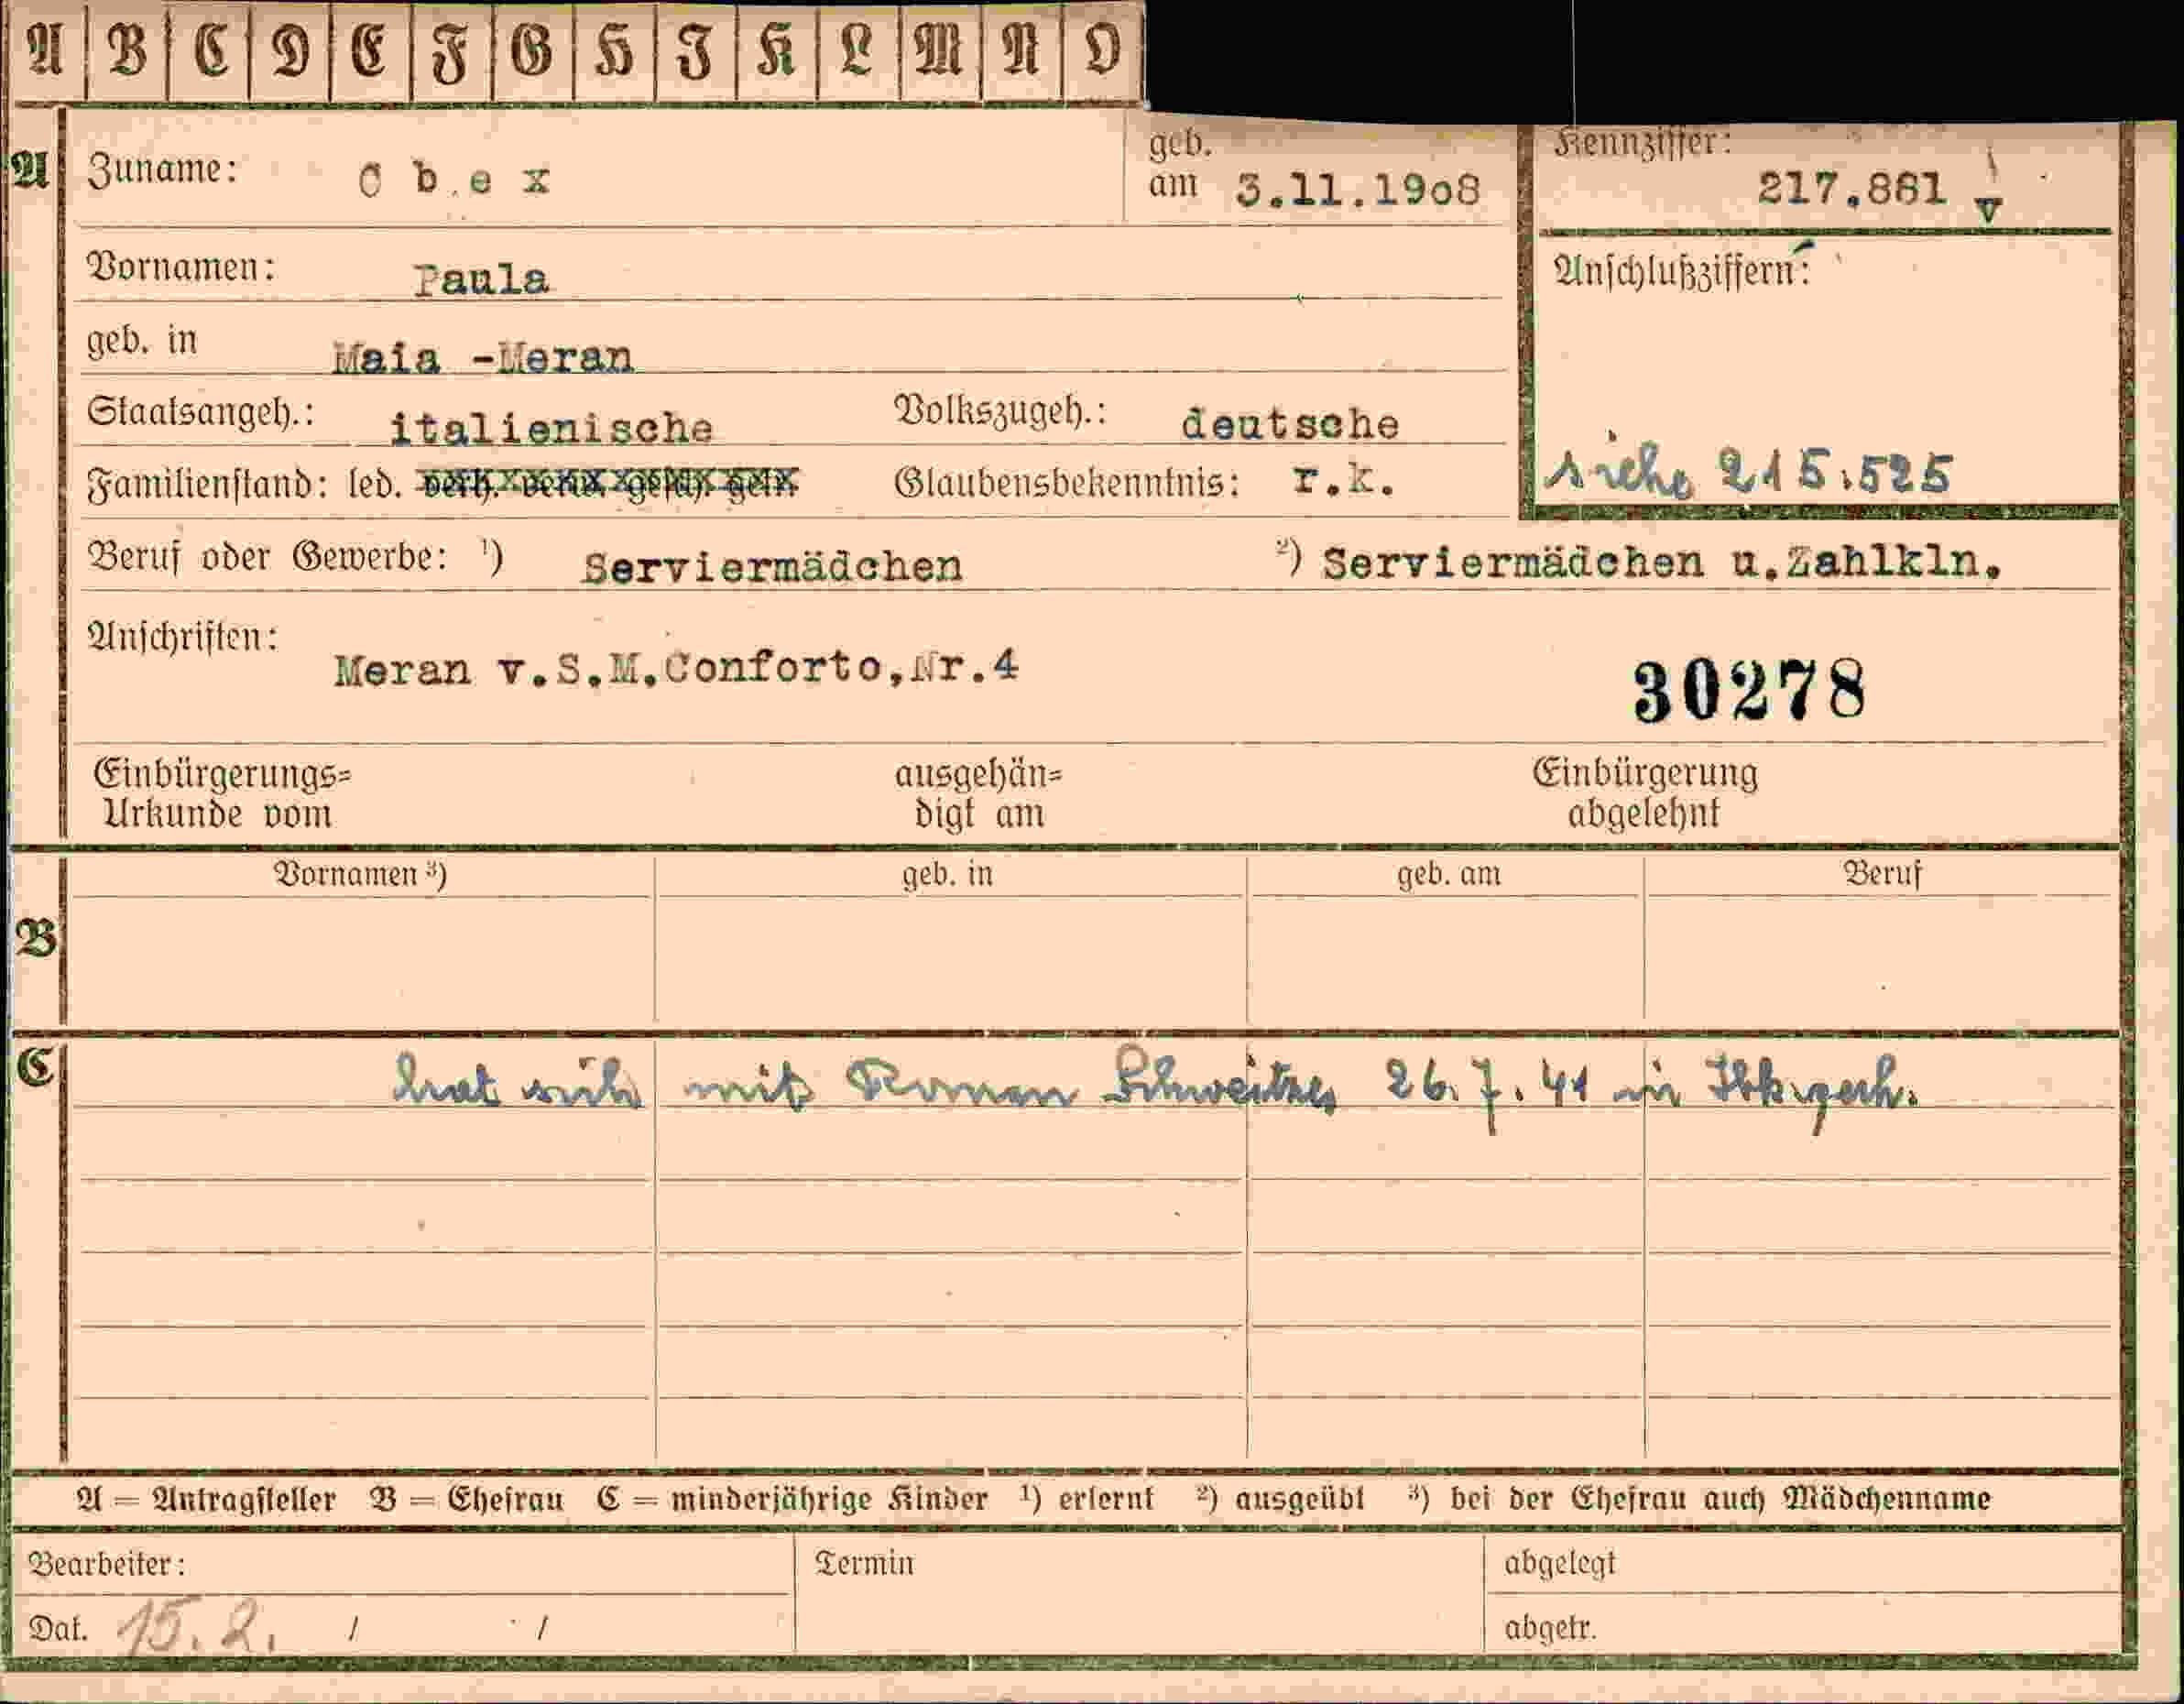 A B C D E F G H I K L M N O
A Zuname: O b e x geb. am 3.11.1908 Kennziffer: 217.881
Vornamen: Paula Anschlußziffern:
geb. in Maia -Meran
Staatsangeh.: italienische Volkszugeh.: deutsche
Familienstand: led. verh. verw. gesch. getr. Glaubensbekenntnis: r.k. siehe 215.525
Beruf oder Gewerbe: ¹) Serviermädchen ²) Serviermädchen u.Zahlkln.
Anschriften: Meran v.S.M.Conforto,Nr.4
30278
Einbürgerungs= Urkunde vom ausgehän= digt am Einbürgerung abgelehnt
Vornamen ³) geb. in geb. am Beruf
B
C hat sich mit Roman Schweitzer 26.7.41 in Ibk.
A = Antragsteller B = Ehefrau C = minderjährige Kinder ¹) erlernt ²) ausgeübt ³) bei der Ehefrau auch Mädchenname
Bearbeiter: Termin abgelegt
Dat. 15.2. / / abgetr.